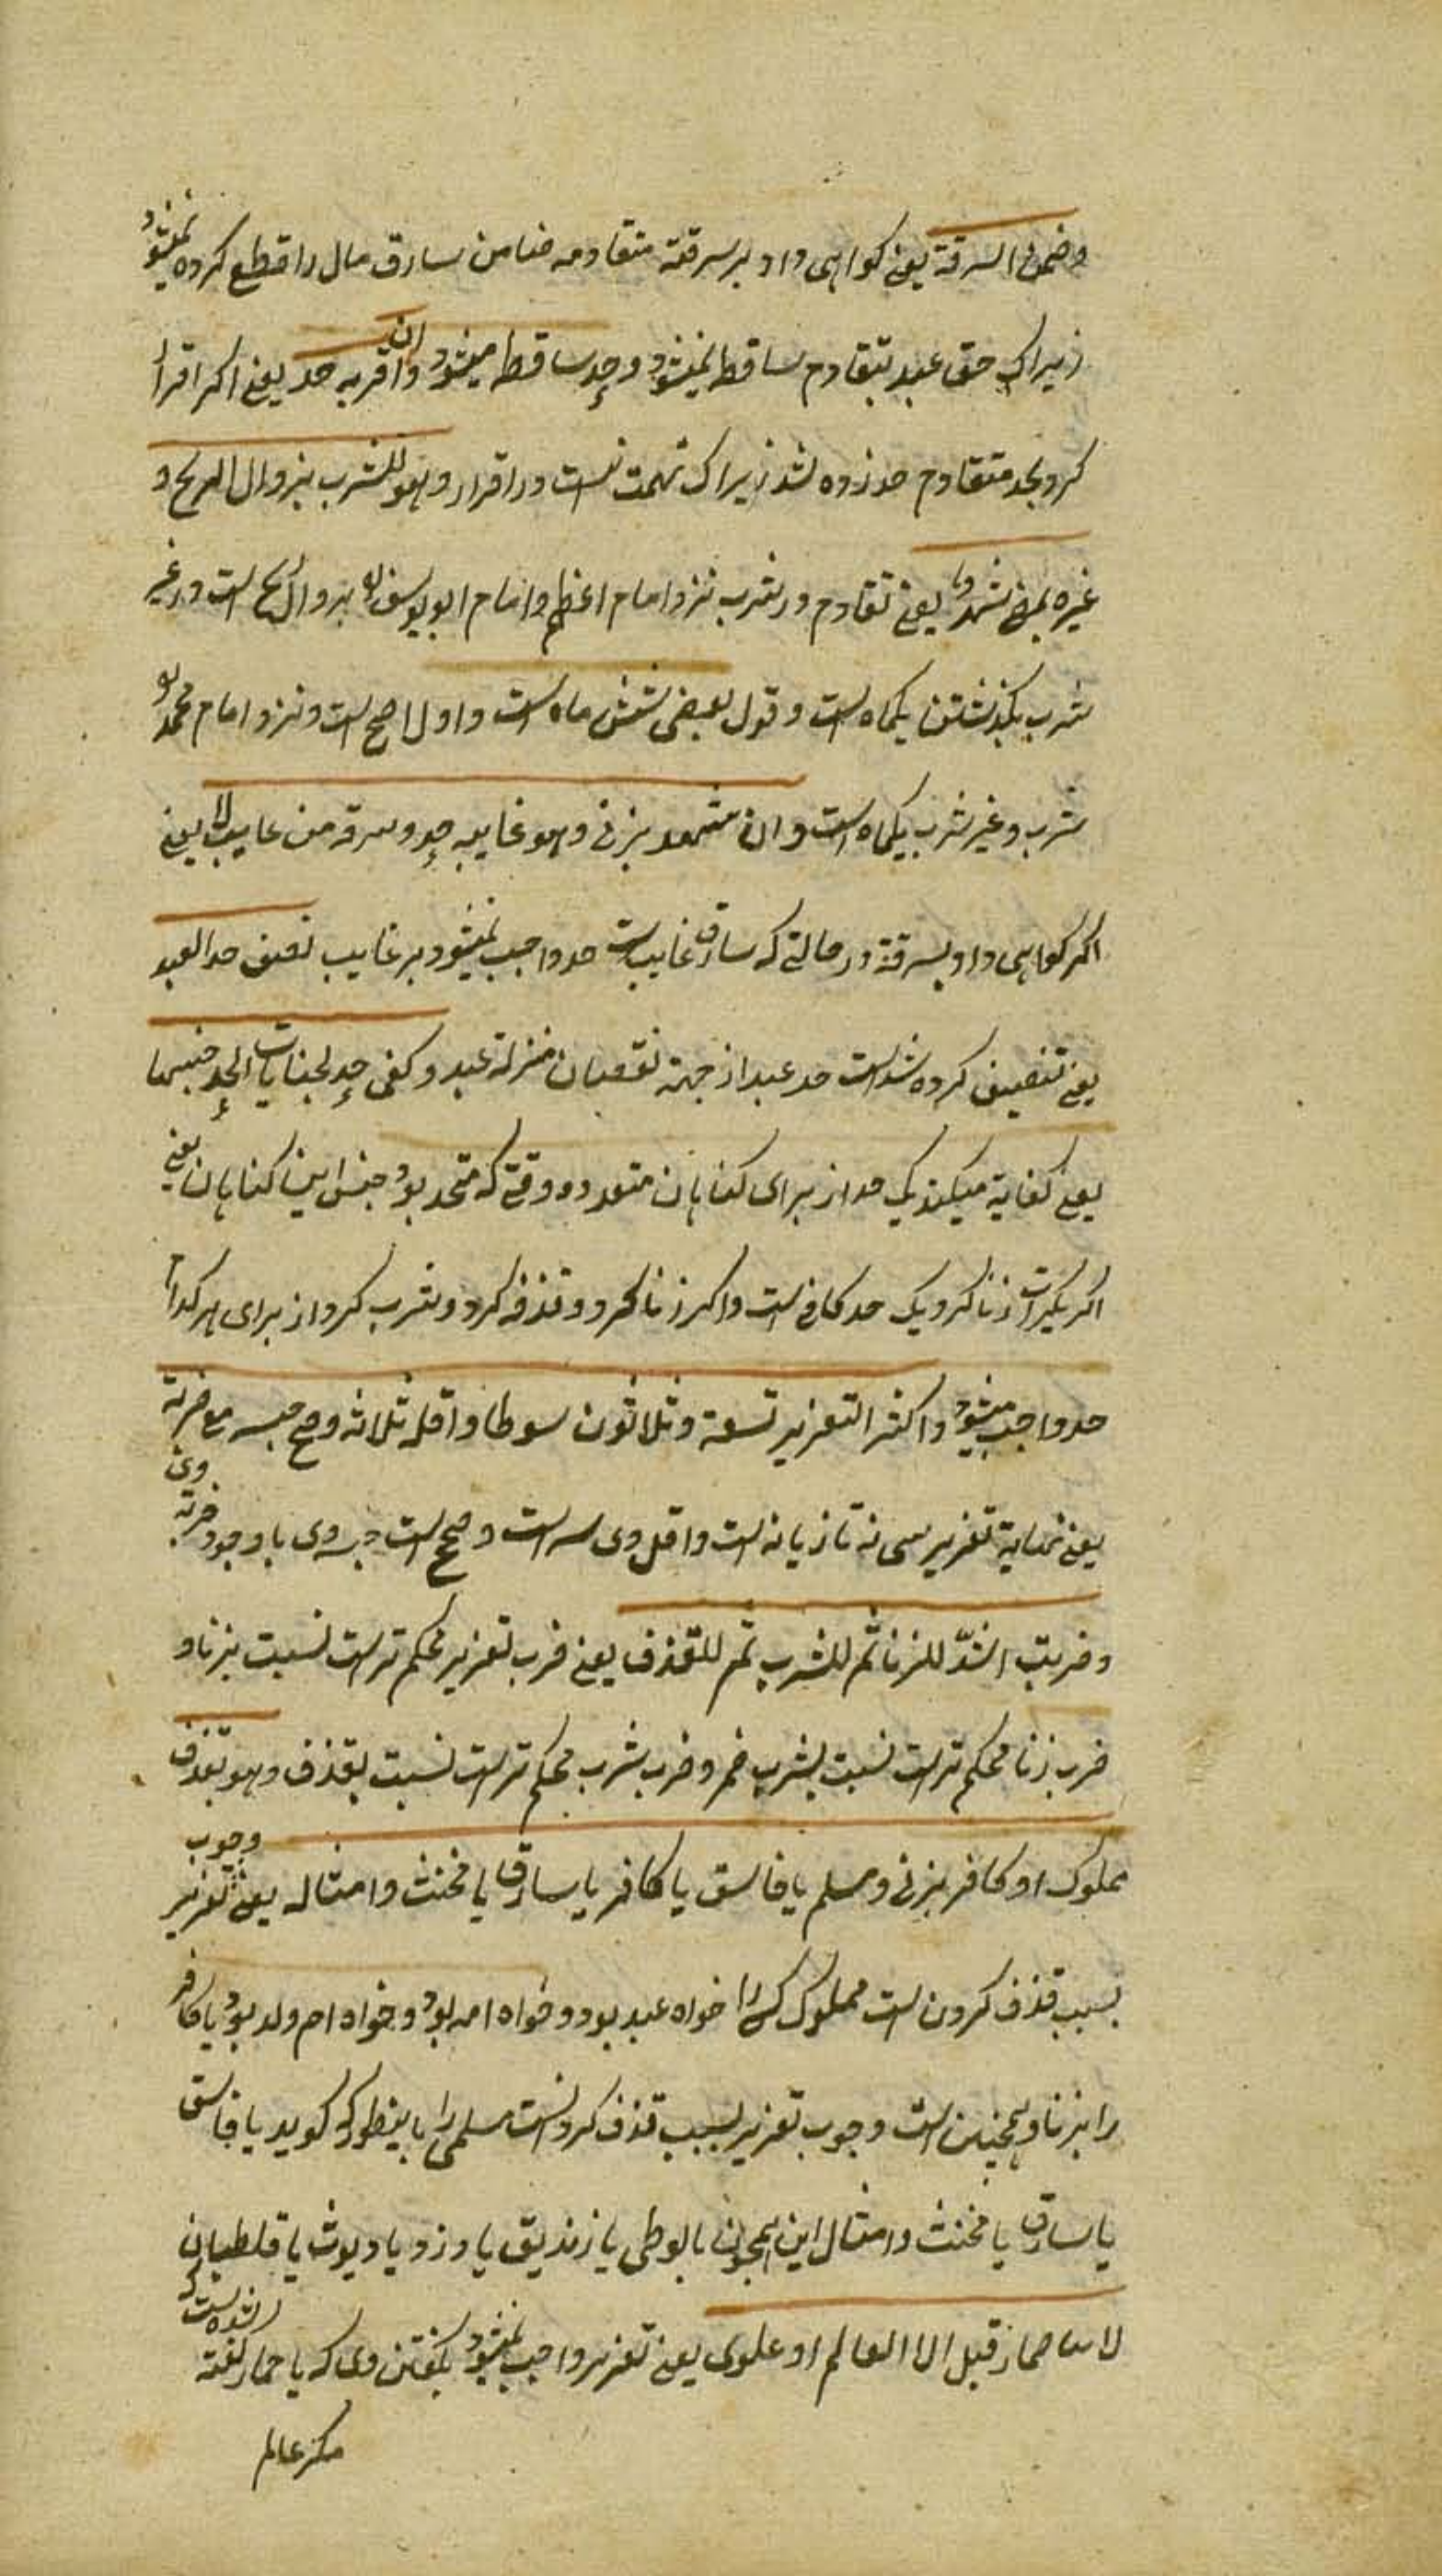 وضمن السرقة یعنی کواهی داد بر سرقه متقادمه ضامن سارق مال را قطع کرده نمیشود
زیراک حق عبد بتقادم ساقط نمیشود و حد ساقط میشود وان اقر به حد یعنی اکر اقرار
کرد بحد متقادم حد زده شد زیراک تهمت نیست در اقرار وهو للشرب بزوال الریح و
غیره بمضی شهر یعنی تقادم در شرب نزد امام اعظم وامام ابو یوسف بزوال ریح است ودر غیر
شرب بکذشتن یکماه است وقول بعضی شش ماه است واول اصح است ونزد امام محمد
شرب وغیر شرب بیکماه است وان شهد بزنی وهو غایبه حد وسرقه من غایب لا یعنی
اکر کواهی داد بسرقة در حالتی که سارق غایب است حد واجب نمیشود بر غایب نصف حد العبد
یعنی تنصیف کرده شد است حد عبد از جهة نقصان منزله عبد وکفی حد لجنایات اتحد جنسها
یعنی کفایة میکند یک حد از برای کناهان متعدده وقتی که متحد بود جنس این کناهان یعنی
اکر بکرات زنا کرد یک حد کافی است واکر زنا کرد وقذف کرد وشرب کرد از برای هر کدام
حد واجب میشود واکثر التعزیر تسعة وثلاثون سوطا واقله ثلاثه وصح حبسه مع ضربه
یعنی نهایة تعزیر سی نه تازیانه است واقل وی سه است وصحیح است حبس وی با وجود ضربه وی
وضربه اشدّ للزنا ثم للشرب ثم للقذف یعنی ضرب تعزیر محکم تر است نسبت بزنا و
ضرب زنا محکم تر است نسبت بشرب خمر وضرب شرب محکم تر است نسبت بقذف وهو بقذف
مملوک او کافر بزنی ومسلم یا فاسق یا کافر یا سارق یا مخنث وامثاله یعنی وجوب تعزیر
بسبب قذف کردن است مملوک کس را خواه عبد بود وخواه امه بود وخواه ام ولد بود یا کافر
را بزنا وهمچنین است وجوب تعزیر بسبب قذف کردنست مسلمی را باینطور که کوید یا فاسق
یا سارق یا مخنث وامثال این همچون یا لوطی یا زندیق یا دزد یا دیوث یا قلطبان
لا بیا حمار قیل الا العالم او علوی یعنی تعزیر واجب نمیشود بکفتن وی که یا حمار کفته شده است که
مکر عالم